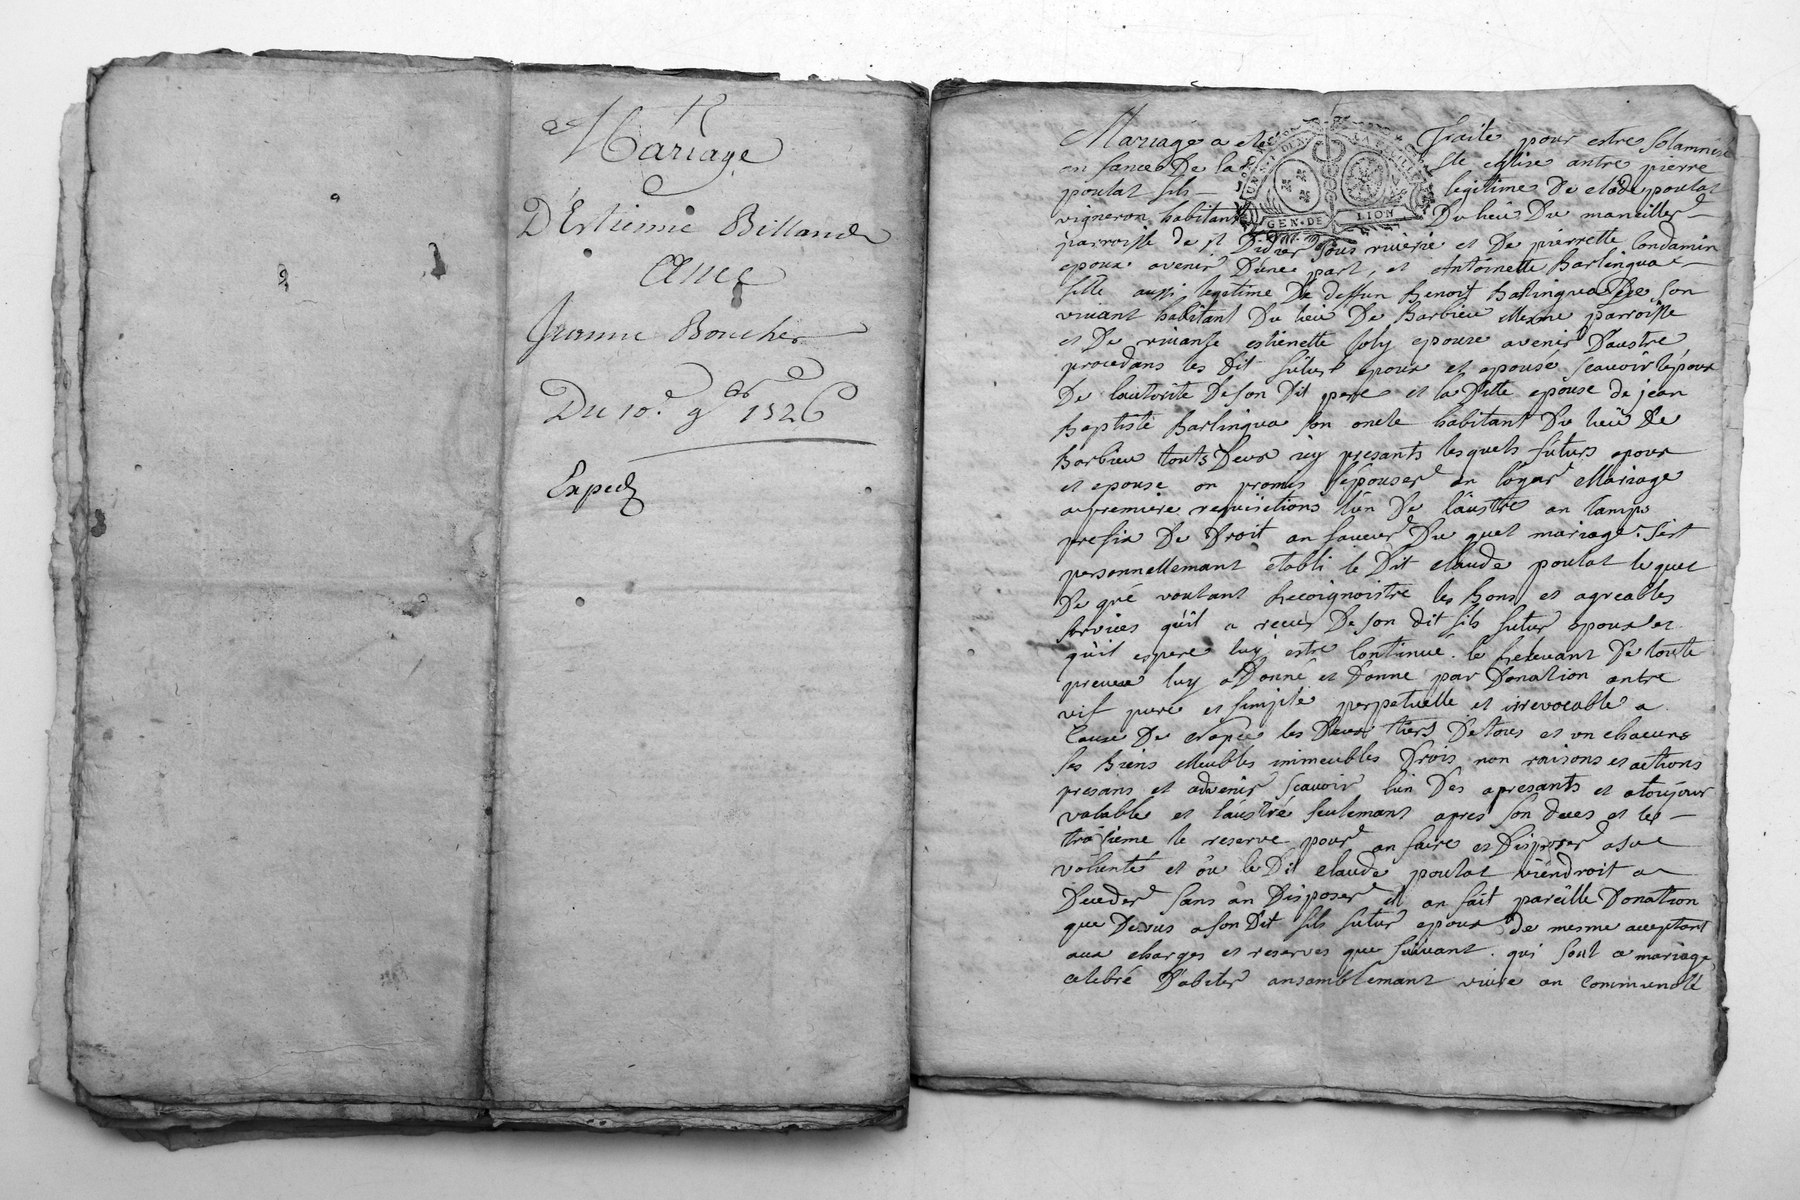 Mariage
D'Estienne Billand
Avec
Jeanne Boucher
Du 10.e 9bre 1526
Exped
Mariage a ete Traite pour estre solamnise
an fance De la Ste eglise antre pierre
poulat fils legitime De clade poulat
vigneron habitant Du lieu Du manillier
parroisse de st Didier sous riverie et De pierrette Condamin
epoux avenir D'une part, et Antoinette Barlingua
fille aussi legetime De deffun Benoist Barlingua De son
vivant habitant Du lieu De Barbieu Mesme parroisse
et De vivante estienette joly epouze avenir D'austre
procedans les Dit futur epoux et epouse scavoir l'epoux
De l'autorite De son Dit pere et la Ditte epouse de jean
Baptiste Barlingua son oncle habitant Du lieu De
Barbieu touts Deux icy presants lesquels futurs epoux
et epouse on promis s'epouser an loyar Mariage
a premiere requisitions l'un De l'austre an tamps
prefix De Droit an faveur Du quel mariage. s'est
personnellemant etabli le Dit claude poulat lequel
De gré voulant recoignoistre les bons et agreables
services qu'il a receu De son dit fils futur epoux et
qu'il espere luy estre Continué. le relevant De toute
preuve luy a Donné et Donne par Donation antre
vif pure et simple perpetuelle et irrevocable a
Cause De les Deux tiers De tous et un chacuns
ses biens Meubles immeubles Drois non raisons et actions
presans et advenir scavoir l'un Des apresants et a toujour
valable et l'austre seulemant apres son deces et le
troisieme le reserve pour an faire et Disposer a sa
volunté et ou le Dit claude poulat viendroit a
Deceder sans an Disposer il an fait pareille Donation
que Desus a son Dit fils futur epoux de mesme acceptant
aux charges et reserves que suivant. qui sont a mariage
celebré D'abiter ansamblemant vivre an communoté
GEN·DE LION